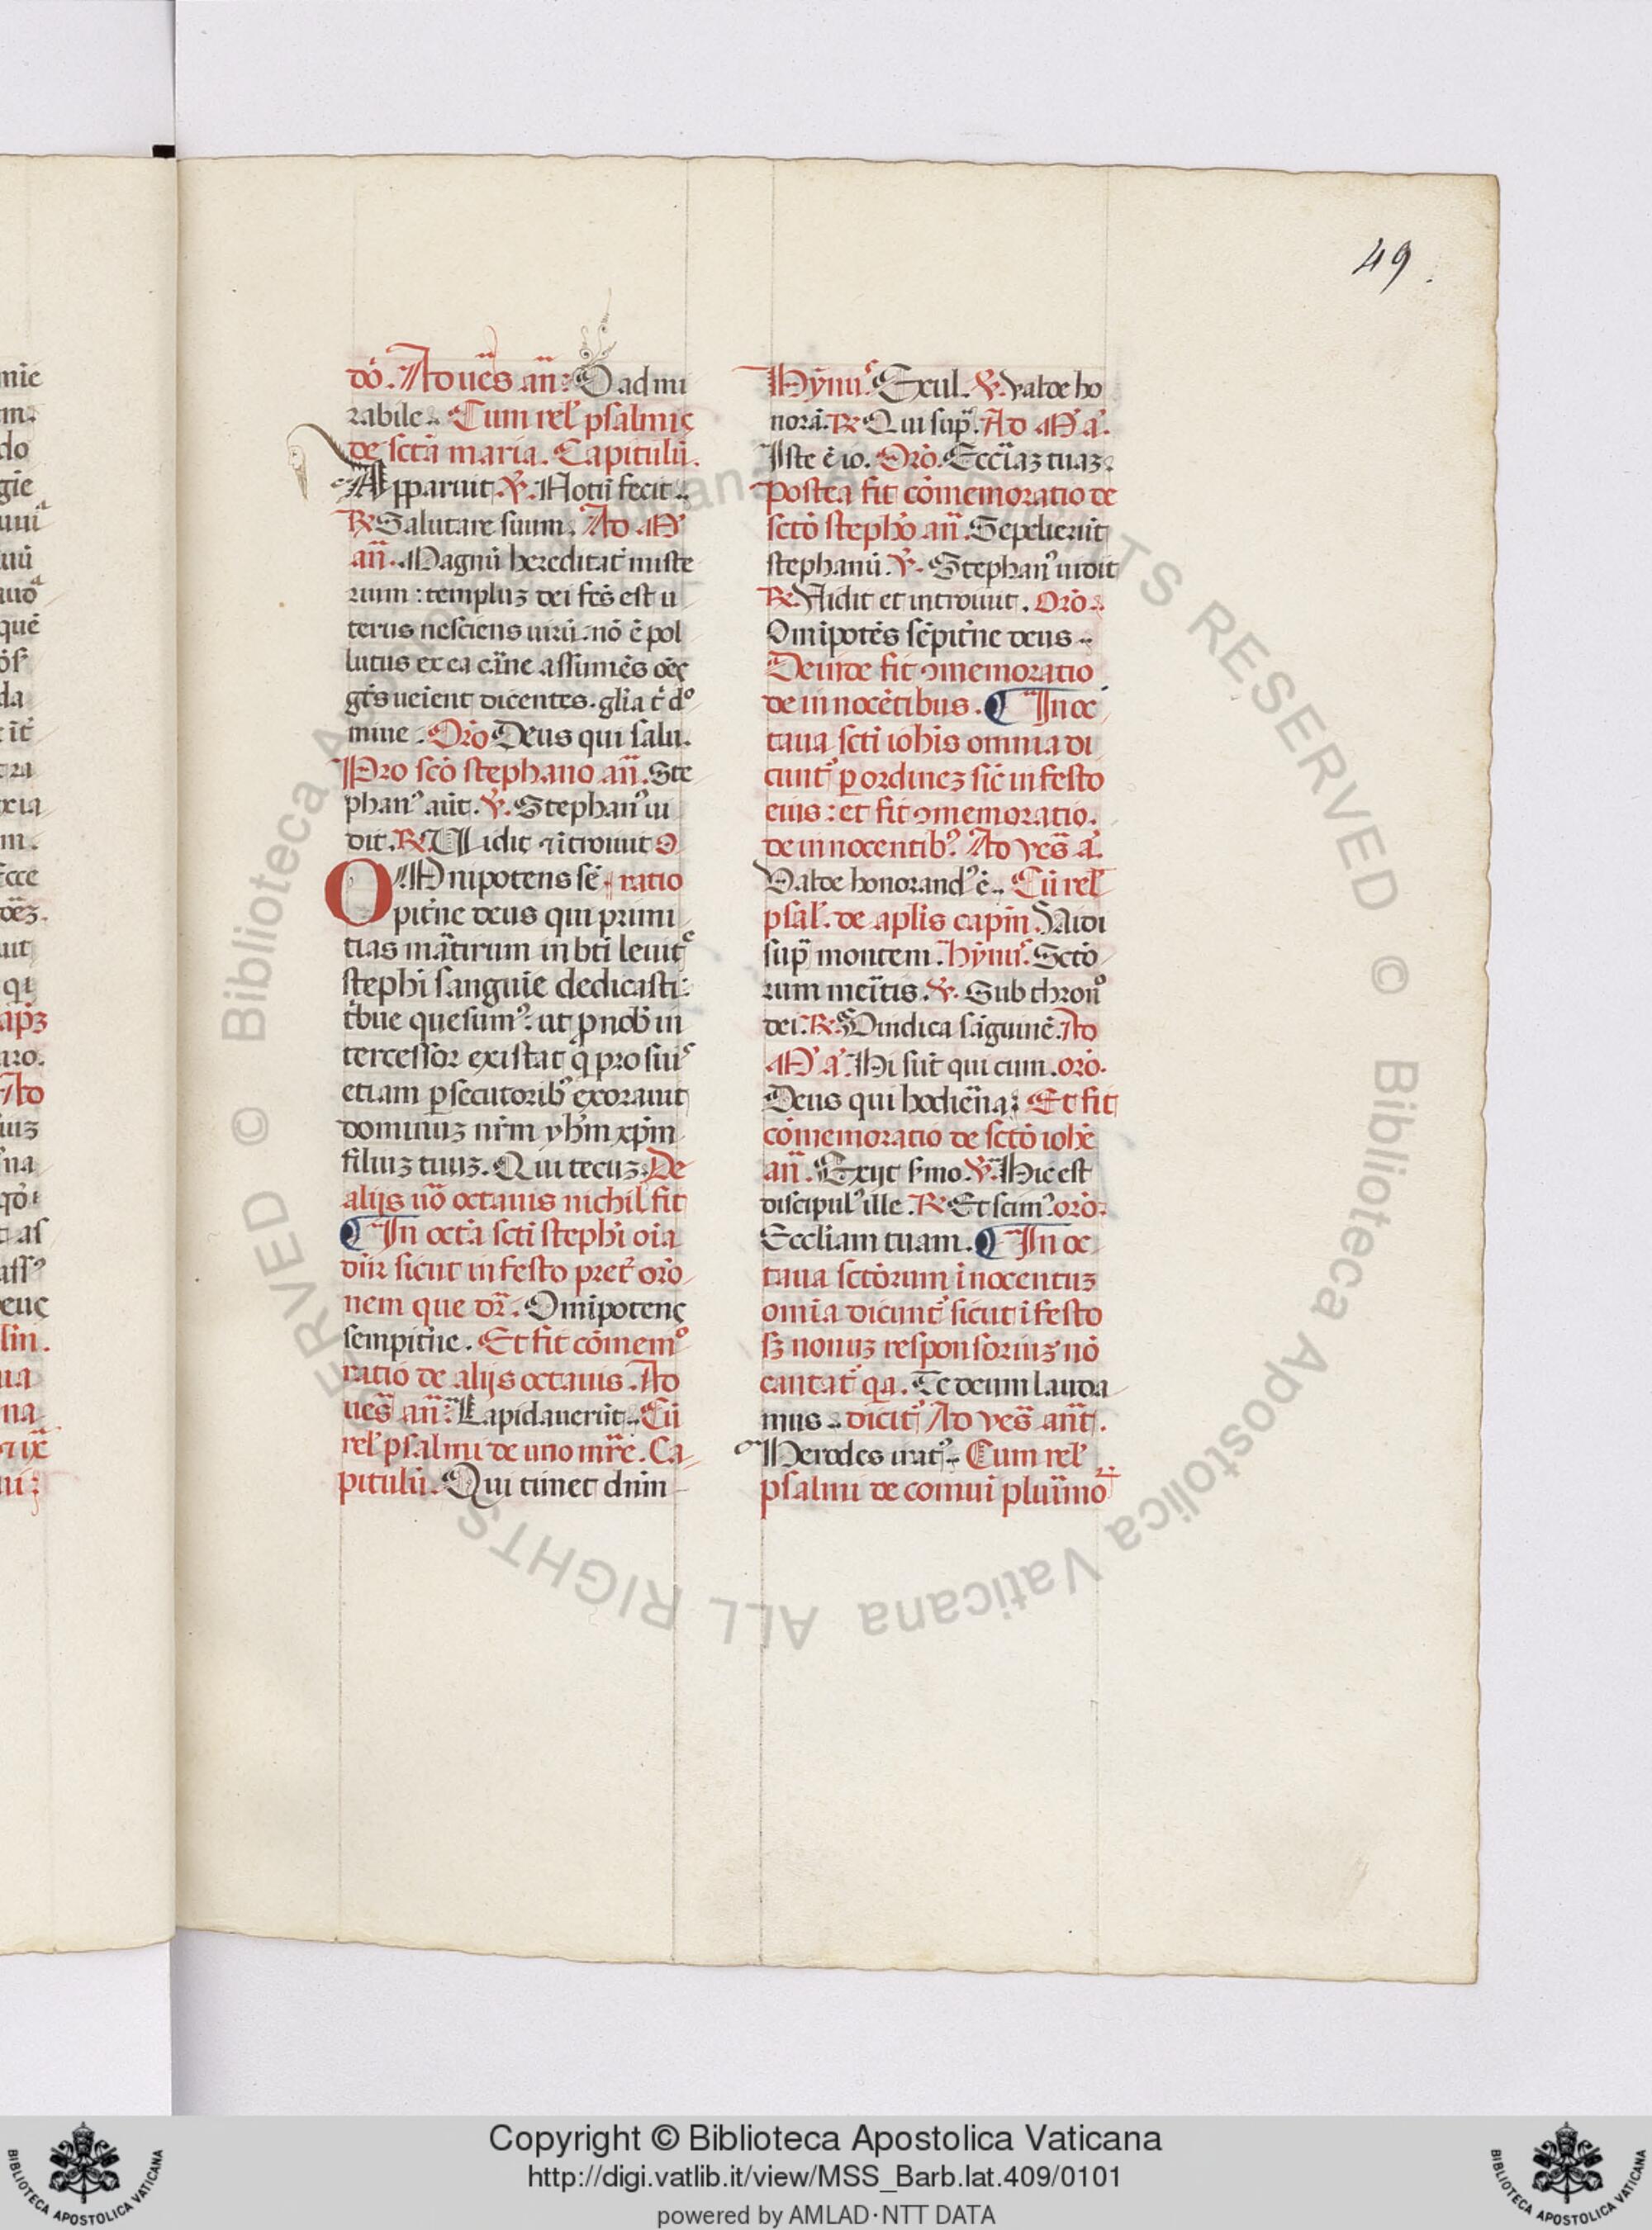 49
dō. Ad ues̄ an̄. O admi
rabile. Cum rel' psalmis
de sctā maria. Capitulū.
Apparuit. ℣. Notū fecit.
℟ Salutare suum. Ad M
an̄. Magnū hereditat̄ miste
rium: templuz dei fcs̄ est u
terus nesciens uirū. nō ē pol
lutus ex ea cārne assumēs oēs
gēts ueient dicentes. glia t̄ do
mine. Orō Deus qui salu.
Pro scō stephano an̄. Ste
phan9 aūt. ℣. Stephan9 ui
dit. ℟ Uidit ⁊ ītrouiit O
OMnipotens sē ratio
pit̄ne deus qui primi
tias mārtirum in bti leuite
stephi sanguīe dedicasti:
tribue quesum9. ut p nob̄ in
tercessor existat q̄ pro suis
etiam psecutorib9 exorauit
dominuz nr̄m yhm̄ xpm̄
filiuz tuuz. Qui tecuz. De
alijs uō octauis nichil fit
¶ In octā scti stephi oia
dn̄r sicut in festo pret̄ orō
nem que dr̄. Omīpotens
sempit̄ne. Et fit cōmemo
ratio de alijs octauis. Ad
ues̄ an̄. Lapidauerūt. Cū
rel' psalmi de uno mr̄e. Ca
pitulū. Qui timet dnm
Hymn9. Exul. ℣. Valde ho
norā. ℟ Qui sup̄. Ad M a.
Iste ē io. Orō. Eccl̄iaz tuaz.
Postea fit cōmemoratio de
sctō stephō an̄. Sepelierūt
stephanū. ℣. Stephan9 uidit
℟. Uidit et introiuit. Orō.
Omīpotēs sēpit̄ne deus.
Deinde fit ꝯmemoratio
de innocētibus. ¶ In oc
taua scti iohis omnia di
cunt̄ p ordinez sic̄ in festo
eius: et fit ꝯmemoratio.
de innocentib9. Ad ves̄ a.
Valde honorand9 ē. Cū rel'
psal'. de apl̄is capm̄. Uidi
sup̄ montem. hymn9. Sctō
rum meītis. ℣. Sub throno
dei. ℟ Vindica sāguinē. Ad
M a. Hi sūt qui cum. orō.
Deus qui hodiēna. Et fit
cōmemoratio de sctō iohē
an̄. Exijt smo. ℣. Hic est
discipul9 ille. ℟ Et scim9. orō.
Eccl̄iam tuam. ¶ In oc
taua sctōrum īnocentuz
omīa dicunt̄ sicut ī festo
sz nonuz responsoriuz nō
cantat̄ qa. Te deum lauda
mus. dicit̄. Ad ves̄ ant̄.
Herodes irat9. Cum rel'
psalmi de comui pluīimo
nīe
em.
do
gīe
quē
da
īt̄
ra
m.
Ecce
uit
qi
ro.
Ad
na
as
ass9
Biblioteca Apostolica Vaticana ALL RIGHTS RESERVED ©
Biblioteca Apostolica Vaticana ALL RIGHTS RESERVED ©
Copyright © Biblioteca Apostolica Vaticana
http://digi.vatlib.it/view/MSS_Barb.lat.409/0101
powered by AMLAD·NTT DATA
BIBLIOTECA APOSTOLICA VATICANA
BIBLIOTECA APOSTOLICA VATICANA